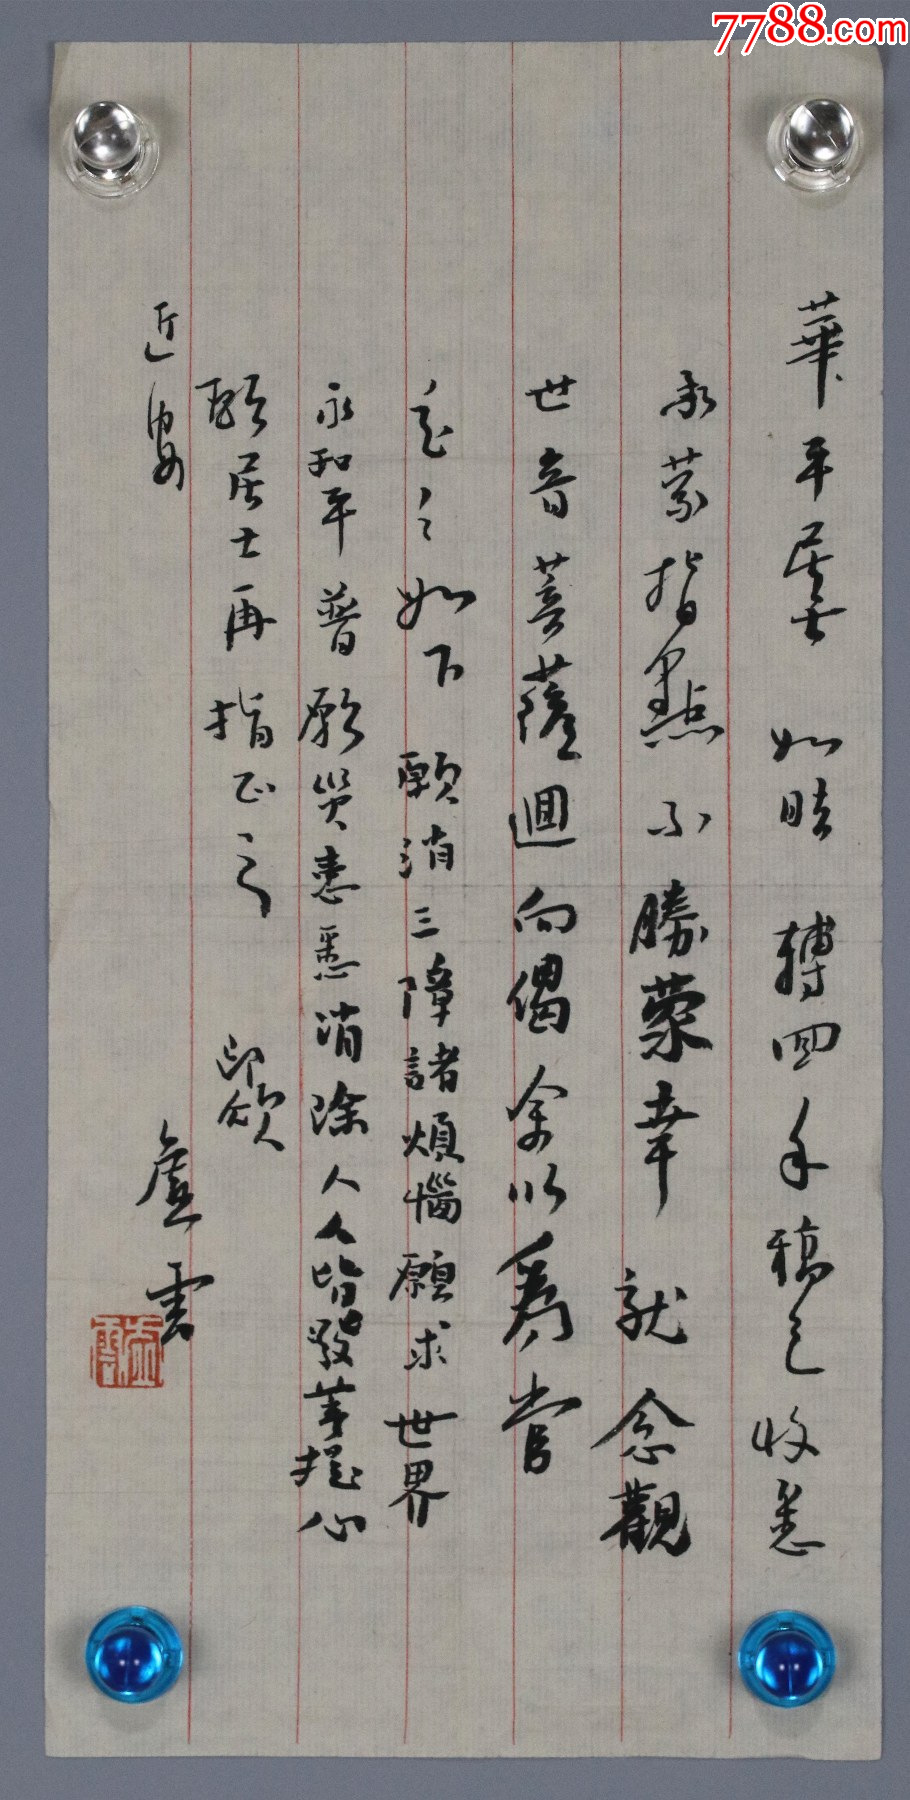 7788.com
華平居士 如晤 轉回手稿已收悉
承蒙指點不勝榮幸 就念觀
世音菩薩迴向偈余以為當
之如下 願消三障諸煩惱願求世界
永和平普願災患悉消除人人皆發菩提心
願居士再指正之 即頌
近安
虛雲
虛雲